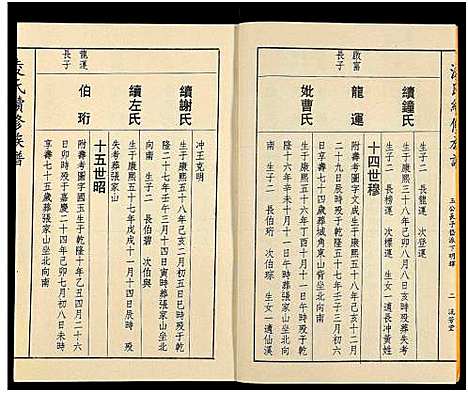 氏續修族譜
玉公長子岱派下明輝
二
啟富
長子
續鐘氏
生子二 長龍運 次登運
生于康熙三十八年己卯八月八日亥時殁葬失考
生子二 長榜運 次標運 生女一適長沖黃姓
十四世穆
龍運
附壽考圖字文成生于康熙五十八年己亥十二月
二十九日辰時殁于乾隆五十七年壬子三月初六
日享壽七十四歲葬城角東山背坐北向南
妣曹氏
生于康熙五十六年丁酉十月十一日午時殁于乾
隆十六年辛未十月十一日午時葬張家山坐北向
南 生子二 長伯琦 次伯奐 生女一適仙溪
沖王克明
續謝氏
生于康熙五十八年己亥二月初五日巳時殁于乾
隆二十七年壬午三月十四日寅時葬張家山坐北
向南 生子二 長伯碧 次伯與
續左氏
生于康熙五十七年戊戌十一月十四日辰時 殁
失考葬張家山
十五世昭
龍運
長子
伯珩
附壽考圖字國玉生于乾隆十年乙丑四月二十六
日卯時殁于嘉慶二十四年己卯七月初八日未時
享壽七十五歲葬張家山坐北向南
氏續修族譜